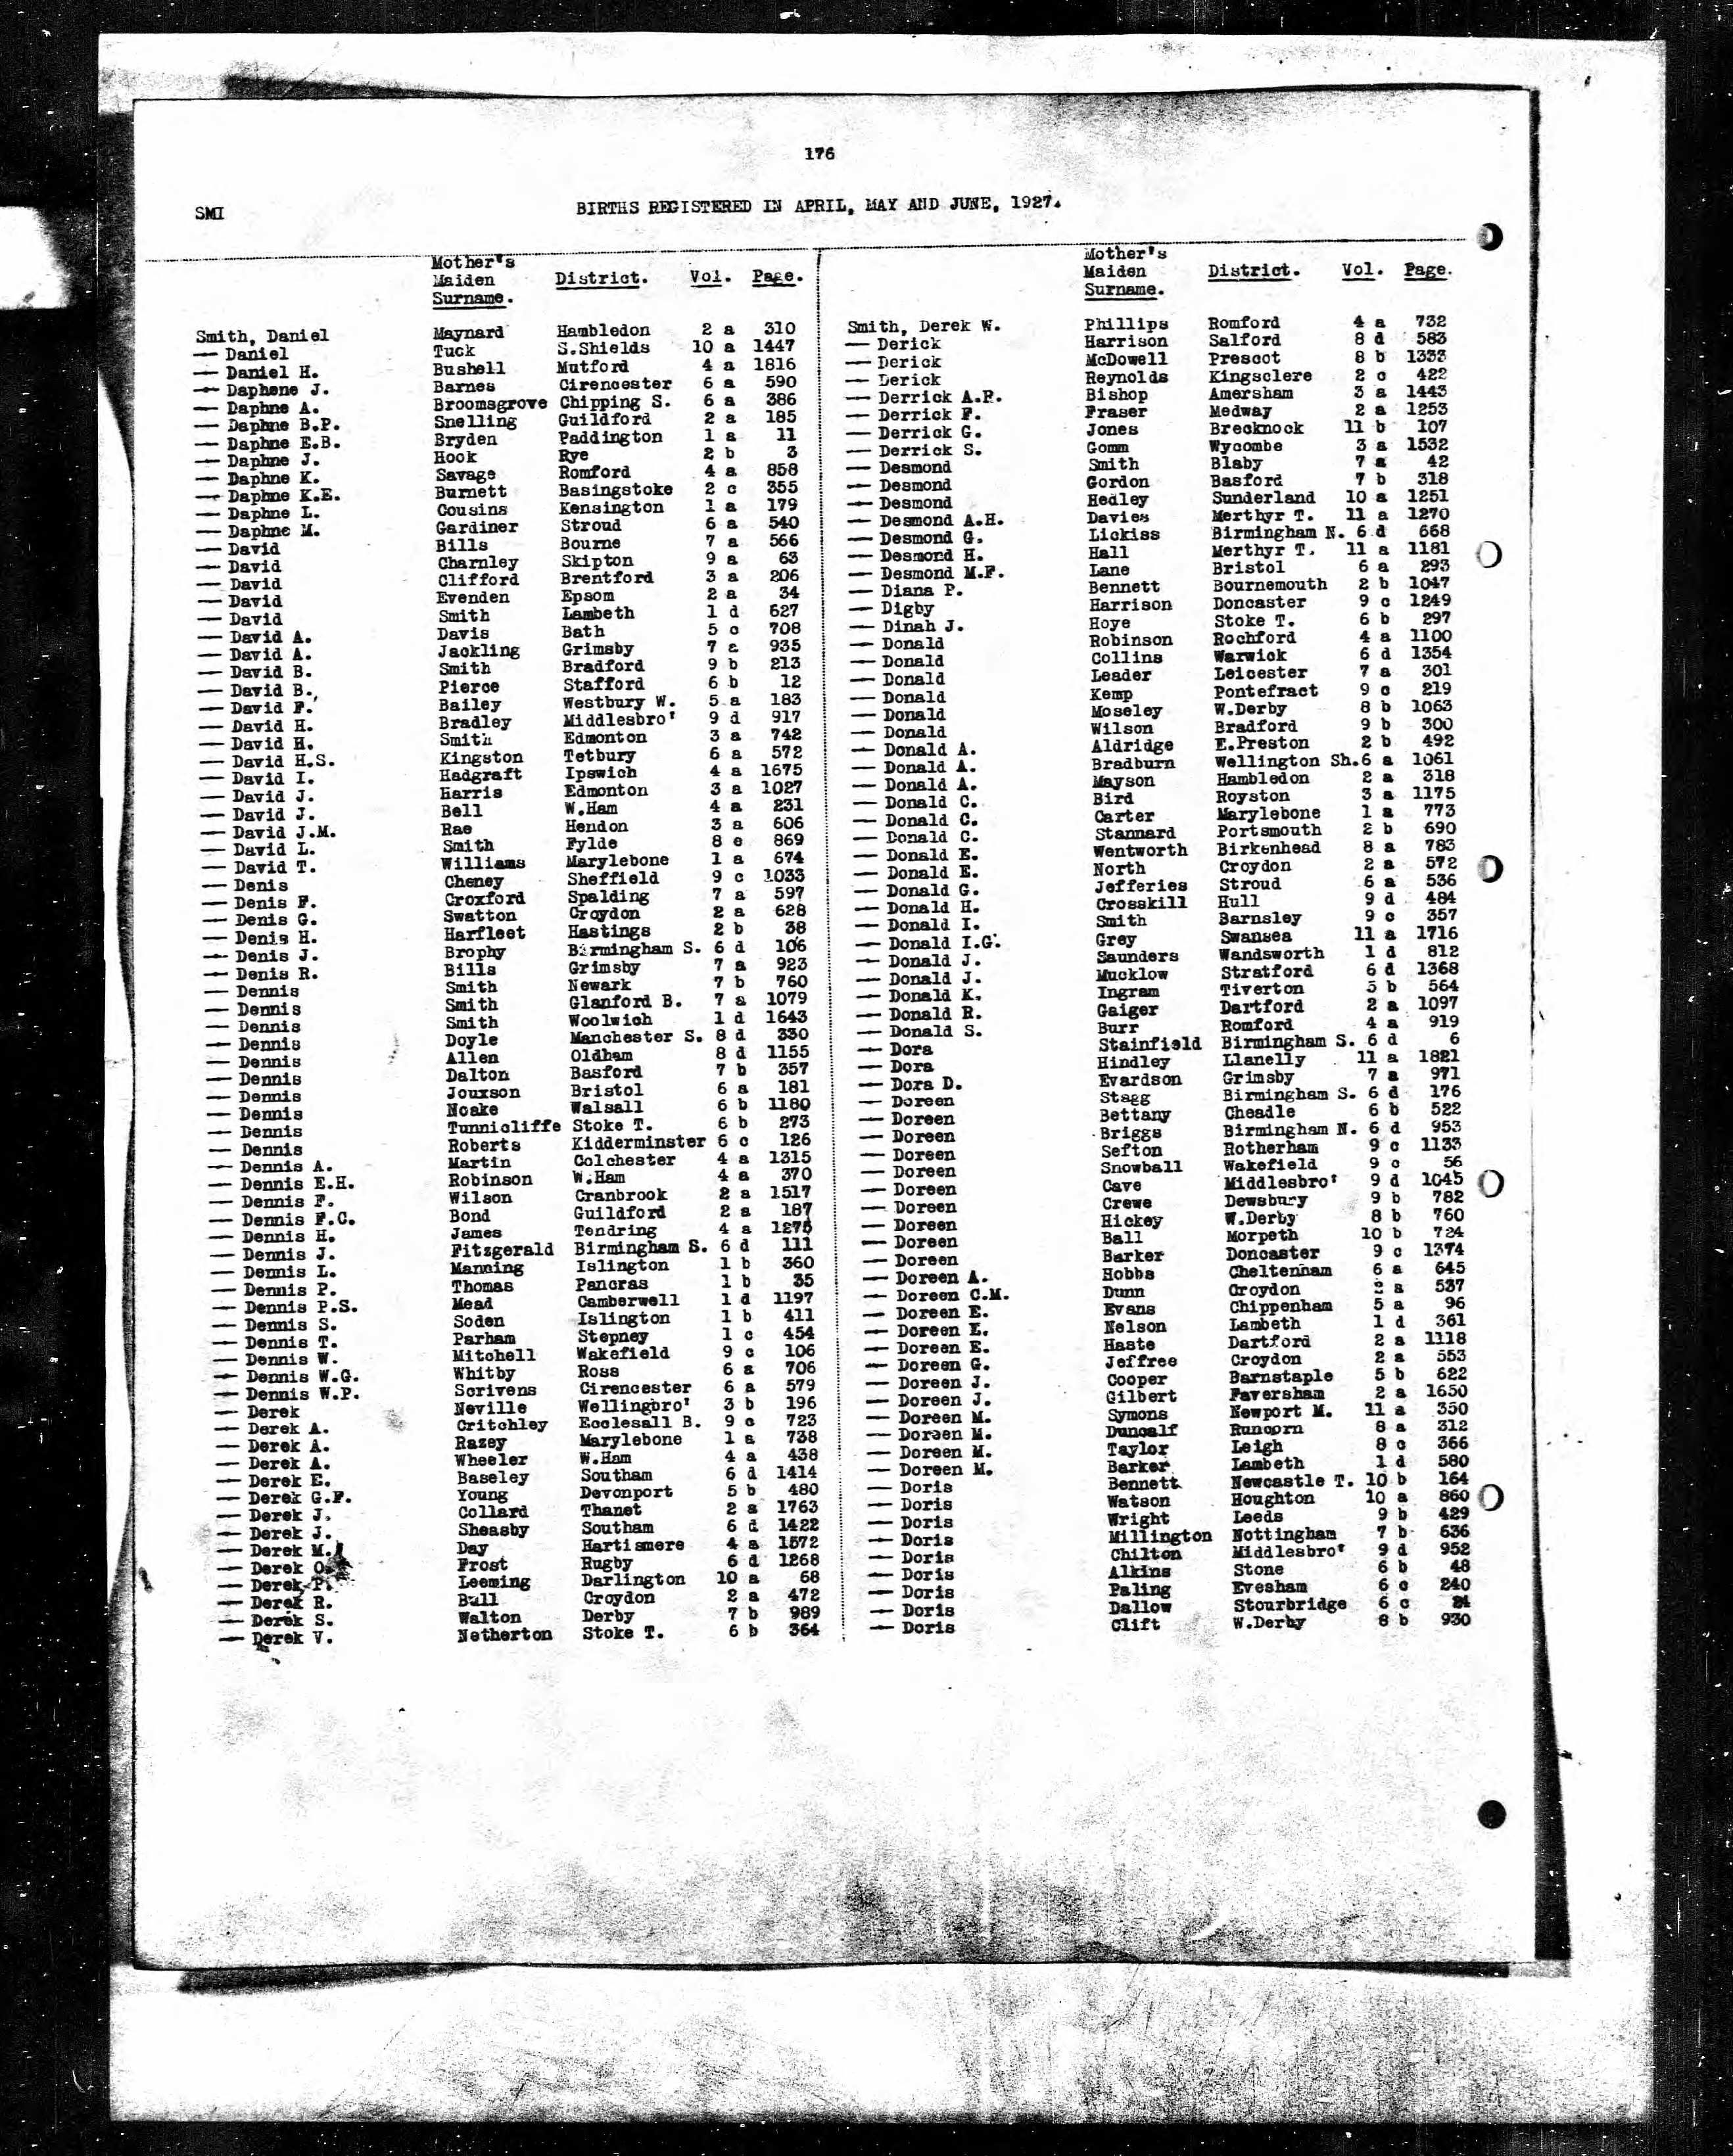 176
SMI
BIRTHS REGISTERED IN APRIL, MAY AND JUNE, 1927.
Mother's
Maiden District. Vol. Page.
Surname.
Smith, Daniel Maynard Hambledon 2 a 310
— Daniel Tuck S.Shields 10 a 1447
— Daniel H. Bushell Mutford 4 a 1816
— Daphene J. Barnes Cirencester 6 a 590
— Daphne A. Broomsgrove Chipping S. 6 a 386
— Daphne B.P. Snelling Guildford 2 a 185
— Daphne E.B. Bryden Paddington 1 a 11
— Daphne J. Hook Rye 2 b 3
— Daphne K. Savage Romford 4 a 858
— Daphne K.E. Burnett Basingstoke 2 c 355
— Daphne L. Cousins Kensington 1 a 179
— Daphne M. Gardiner Stroud 6 a 540
— David Bills Bourne 7 a 566
— David Charnley Skipton 9 a 63
— David Clifford Brentford 3 a 206
— David Evenden Epsom 2 a 34
— David Smith Lambeth 1 d 627
— David A. Davis Bath 5 c 708
— David A. Jackling Grimsby 7 a 935
— David B. Smith Bradford 9 b 213
— David B. Pierce Stafford 6 b 12
— David F. Bailey Westbury W. 5 a 183
— David H. Bradley Middlesbro' 9 d 917
— David H. Smith Edmonton 3 a 742
— David H.S. Kingston Tetbury 6 a 572
— David I. Hadgraft Ipswich 4 a 1675
— David J. Harris Edmonton 3 a 1027
— David J. Bell W.Ham 4 a 231
— David J.M. Rae Hendon 3 a 606
— David L. Smith Fylde 8 e 869
— David T. Williams Marylebone 1 a 674
— Denis Cheney Sheffield 9 c 1033
— Denis F. Croxford Spalding 7 a 597
— Denis G. Swatton Croydon 2 a 628
— Denis H. Harfleet Hastings 2 b 38
— Denis J. Brophy Birmingham S. 6 d 106
— Denis R. Bills Grimsby 7 a 923
— Dennis Smith Newark 7 b 760
— Dennis Smith Glanford B. 7 a 1079
— Dennis Smith Woolwich 1 d 1643
— Dennis Doyle Manchester S. 8 d 330
— Dennis Allen Oldham 8 d 1155
— Dennis Dalton Basford 7 b 357
— Dennis Jouxson Bristol 6 a 181
— Dennis Noake Walsall 6 b 1180
— Dennis Tunnicliffe Stoke T. 6 b 273
— Dennis Roberts Kidderminster 6 c 126
— Dennis A. Martin Colchester 4 a 1315
— Dennis E.H. Robinson W.Ham 4 a 370
— Dennis F. Wilson Cranbrook 2 a 1517
— Dennis F.C. Bond Guildford 2 a 187
— Dennis H. James Tendring 4 a
— Dennis J. Fitzgerald Birmingham S. 6 d 111
— Dennis L. Manning Islington 1 b 360
— Dennis P. Thomas Pancras 1 b 35
— Dennis P.S. Mead Camberwell 1 d 1197
— Dennis S. Soden Islington 1 b 411
— Dennis T. Parham Stepney 1 c 454
— Dennis W. Mitchell Wakefield 9 c 106
— Dennis W.G. Whitby Ross 6 a 706
— Dennis W.P. Scrivens Cirencester 6 a 579
— Derek Neville Wellingbro' 3 b 196
— Derek A. Critchley Ecclesall B. 9 c 723
— Derek A. Razey Marylebone 1 a 738
— Derek A. Wheeler W.Ham 4 a 438
— Derek E. Baseley Southam 6 d 1414
— Derek G.F. Young Devonport 5 b 480
— Derek J. Collard Thanet 2 a 1763
— Derek J. Sheasby Southam 6 d 1422
— Derek M. Day Hartismere 4 a 1572
— Derek O. Frost Rugby 6 d 1268
— Derek P. Leeming Darlington 10 a 68
— Derek R. Ball Croydon 2 a 472
— Derek S. Walton Derby 7 b 989
— Derek V. Netherton Stoke T. 6 b 364
Mother's
Maiden District. Vol. Page.
Surname.
Smith, Derek W. Phillips Romford 4 a 732
— Derick Harrison Salford 8 d 583
— Derick McDowell Prescot 8 b 1333
— Derick Reynolds Kingsclere 2 c 422
— Derrick A.P. Bishop Amersham 3 a 1443
— Derrick F. Fraser Medway 2 a 1253
— Derrick G. Jones Brecknock 11 b 107
— Derrick S. Gomm Wycombe 3 a 1532
— Desmond Smith Blaby 7 a 42
— Desmond Gordon Basford 7 b 318
— Desmond Hedley Sunderland 10 a 1251
— Desmond A.H. Davies Merthyr T. 11 a 1270
— Desmond G. Lickiss Birmingham N. 6 d 668
— Desmond H. Hall Merthyr T. 11 a 1181
— Desmond M.F. Lane Bristol 6 a 293
— Diana P. Bennett Bournemouth 2 b 1047
— Digby Harrison Doncaster 9 c 1249
— Dinah J. Hoye Stoke T. 6 b 297
— Donald Robinson Rochford 4 a 1100
— Donald Collins Warwick 6 d 1354
— Donald Leader Leicester 7 a 301
— Donald Kemp Pontefract 9 c 219
— Donald Moseley W.Derby 8 b 1063
— Donald Wilson Bradford 9 b 300
— Donald A. Aldridge E.Preston 2 b 492
— Donald A. Bradburn Wellington Sh. 6 a 1061
— Donald A. Mayson Hambledon 2 a 318
— Donald C. Bird Royston 3 a 1175
— Donald C. Carter Marylebone 1 a 773
— Donald C. Stannard Portsmouth 2 b 690
— Donald E. Wentworth Birkenhead 8 a 783
— Donald E. North Croydon 2 a 572
— Donald G. Jefferies Stroud 6 a 536
— Donald H. Crosskill Hull 9 d 484
— Donald I. Smith Barnsley 9 c 357
— Donald I.G. Grey Swansea 11 a 1716
— Donald J. Saunders Wandsworth 1 d 812
— Donald J. Mucklow Stratford 6 d 1368
— Donald K. Ingram Tiverton 5 b 564
— Donald R. Gaiger Dartford 2 a 1097
— Donald S. Burr Romford 4 a 919
— Dora Stainfield Birmingham S. 6 d 6
— Dora Hindley Llanelly 11 a 1821
— Dora D. Evardson Grimsby 7 a 971
— Doreen Stagg Birmingham S. 6 d 176
— Doreen Bettany Cheadle 6 b 522
— Doreen Briggs Birmingham N. 6 d 953
— Doreen Sefton Rotherham 9 c 1133
— Doreen Snowball Wakefield 9 c 56
— Doreen Cave Middlesbro' 9 d 1045
— Doreen Crewe Dewsbury 9 b 782
— Doreen Hickey W.Derby 8 b 760
— Doreen Ball Morpeth 10 b 724
— Doreen Barker Doncaster 9 c 1374
— Doreen A. Hobbs Cheltenham 6 a 645
— Doreen C.M. Dunn Croydon 2 a 537
— Doreen E. Evans Chippenham 5 a 96
— Doreen E. Nelson Lambeth 1 d 361
— Doreen E. Haste Dartford 2 a 1118
— Doreen G. Jeffree Croydon 2 a 553
— Doreen J. Cooper Barnstaple 5 b 622
— Doreen J. Gilbert Faversham 2 a 1650
— Doreen M. Symons Newport M. 11 a 350
— Doreen M. Duncalf Runcorn 8 a 312
— Doreen M. Taylor Leigh 8 c 366
— Doreen M. Barker Lambeth 1 d 580
— Doris Bennett Newcastle T. 10 b 164
— Doris Watson Houghton 10 a 860
— Doris Wright Leeds 9 b 429
— Doris Millington Nottingham 7 b 636
— Doris Chilton Middlesbro' 9 d 952
— Doris Alkins Stone 6 b 48
— Doris Paling Evesham 6 c 240
— Doris Dallow Stourbridge 6 c
— Doris Clift W.Derby 8 b 930